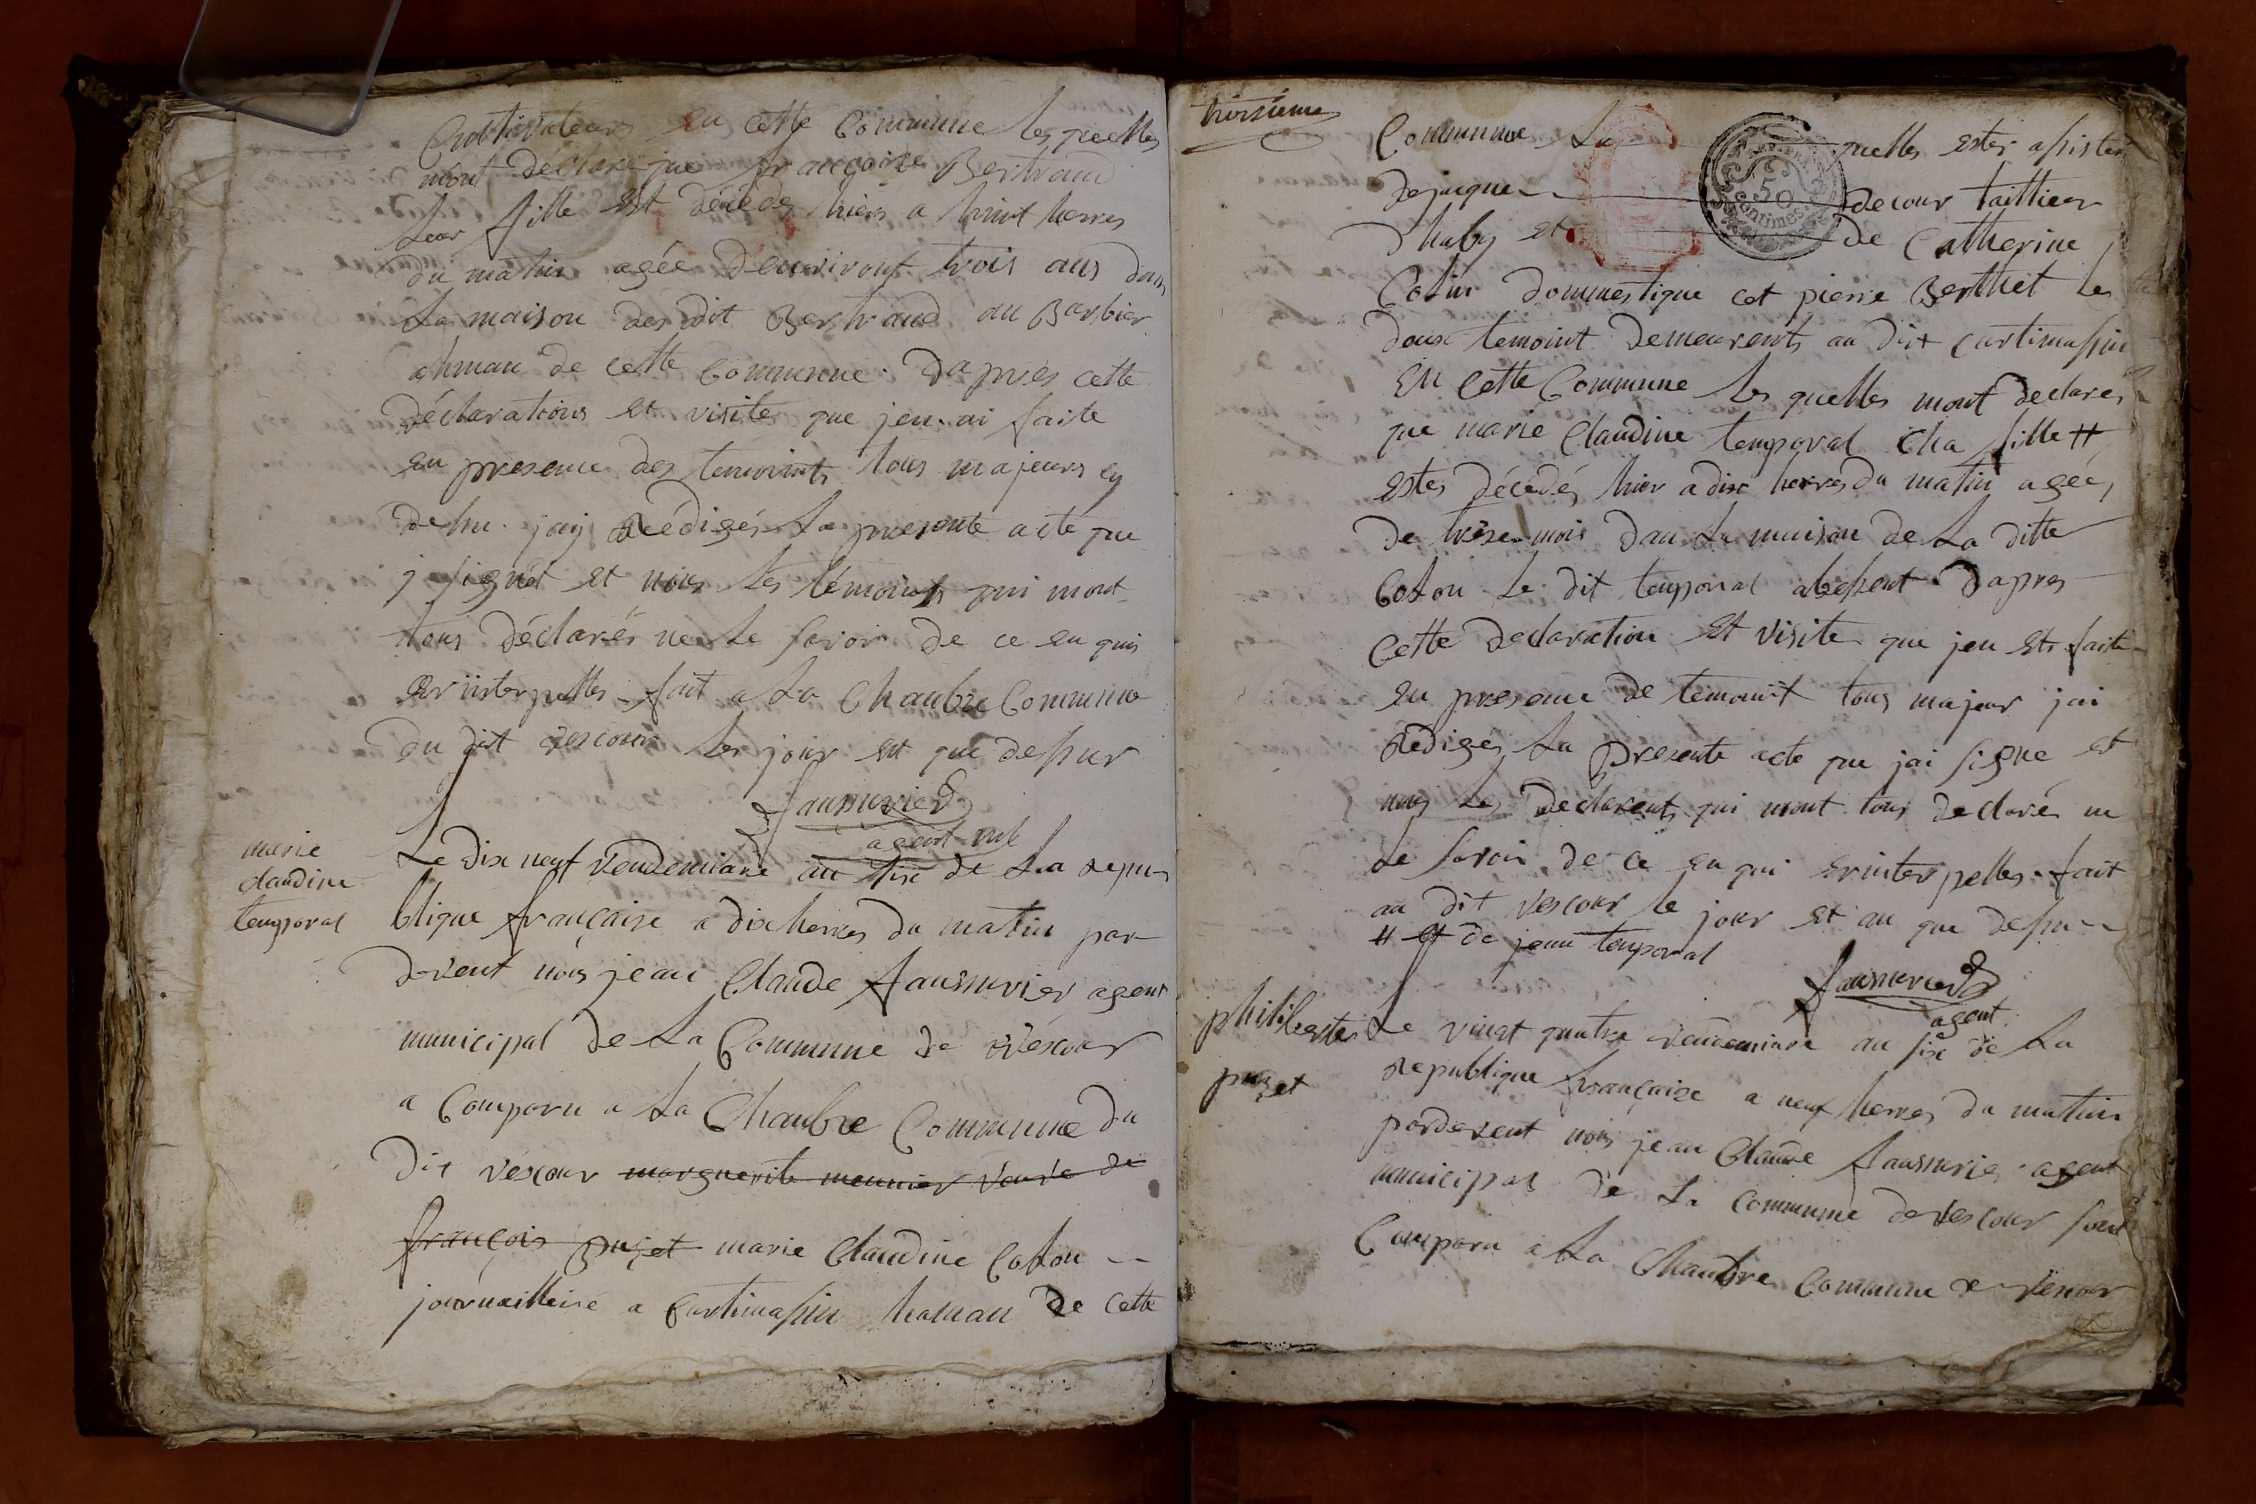 Cultivateurs en cette Commune les quelles
mont déclaré que françoise Bertrand
Leur fille est décédé hiers a huint herres
du matin agée denviront trois ans dans
La maison des dit Bertrand au Barbier
ahmau de cette Commune. Dapres cette
déclarations et visite que jeu. ai faite
en presence des temoints tous majeurs ey
dehu. jaij Redigés La presente acte que
j signét et nois les témoints qui mont
tous déclarés ne le savoir de ce en quis
er interpelles fait a La Chanbre Commune
du dit vescour Les jour en que dessur
faussurier
agent mpl
marie
claudine
temporal
Le dix neuf vendemiaire an six de La repu
blique française a dix herres du matin par
devent nois jeau Claude faussurier agent
municipal de La Commune de véscour
a Comparu a La Chanbre Commune du
Dit véscour marguerite meunier veuve de
françois puzet marie Claudine Colon
journaillere a Curtimassin hamau de cette
troisieme
Commune La quelles ester assister
dejaque decour taillieur
Dhaby et de Catherine
Colin dommestique cet pierre Berthet les
deux temoint demeurents au dit curtimassin
en cette Commune les quelles mont declarés
que marie Claudine temporal cha fille #
estes décédés hier a dix herres du matin agée,
de treise mois dan La maison de La ditte
Colon Le dit temporal abssent. Dapres
Cette declaration et visite que jeu ets faite
en presence de temoint tous majeur jai
Redigés La presente acte que jai signe et
nons Les Declarent qui mont tous declarés ne
Le savoir de ce en qui er interpelles. fait
au dit véscour le jour et an que dessu
# et de jeau temporal
faussurier
agent
philiberte
puzet
Le vingt quatre vendemiaire an six de La
republique française a neuf herres du matin
pardevent nois jeau Claude faussurier agent
municipal de La Commune de vescour sont
Comparu a La Chanbre Commune de vescour
50
centimes